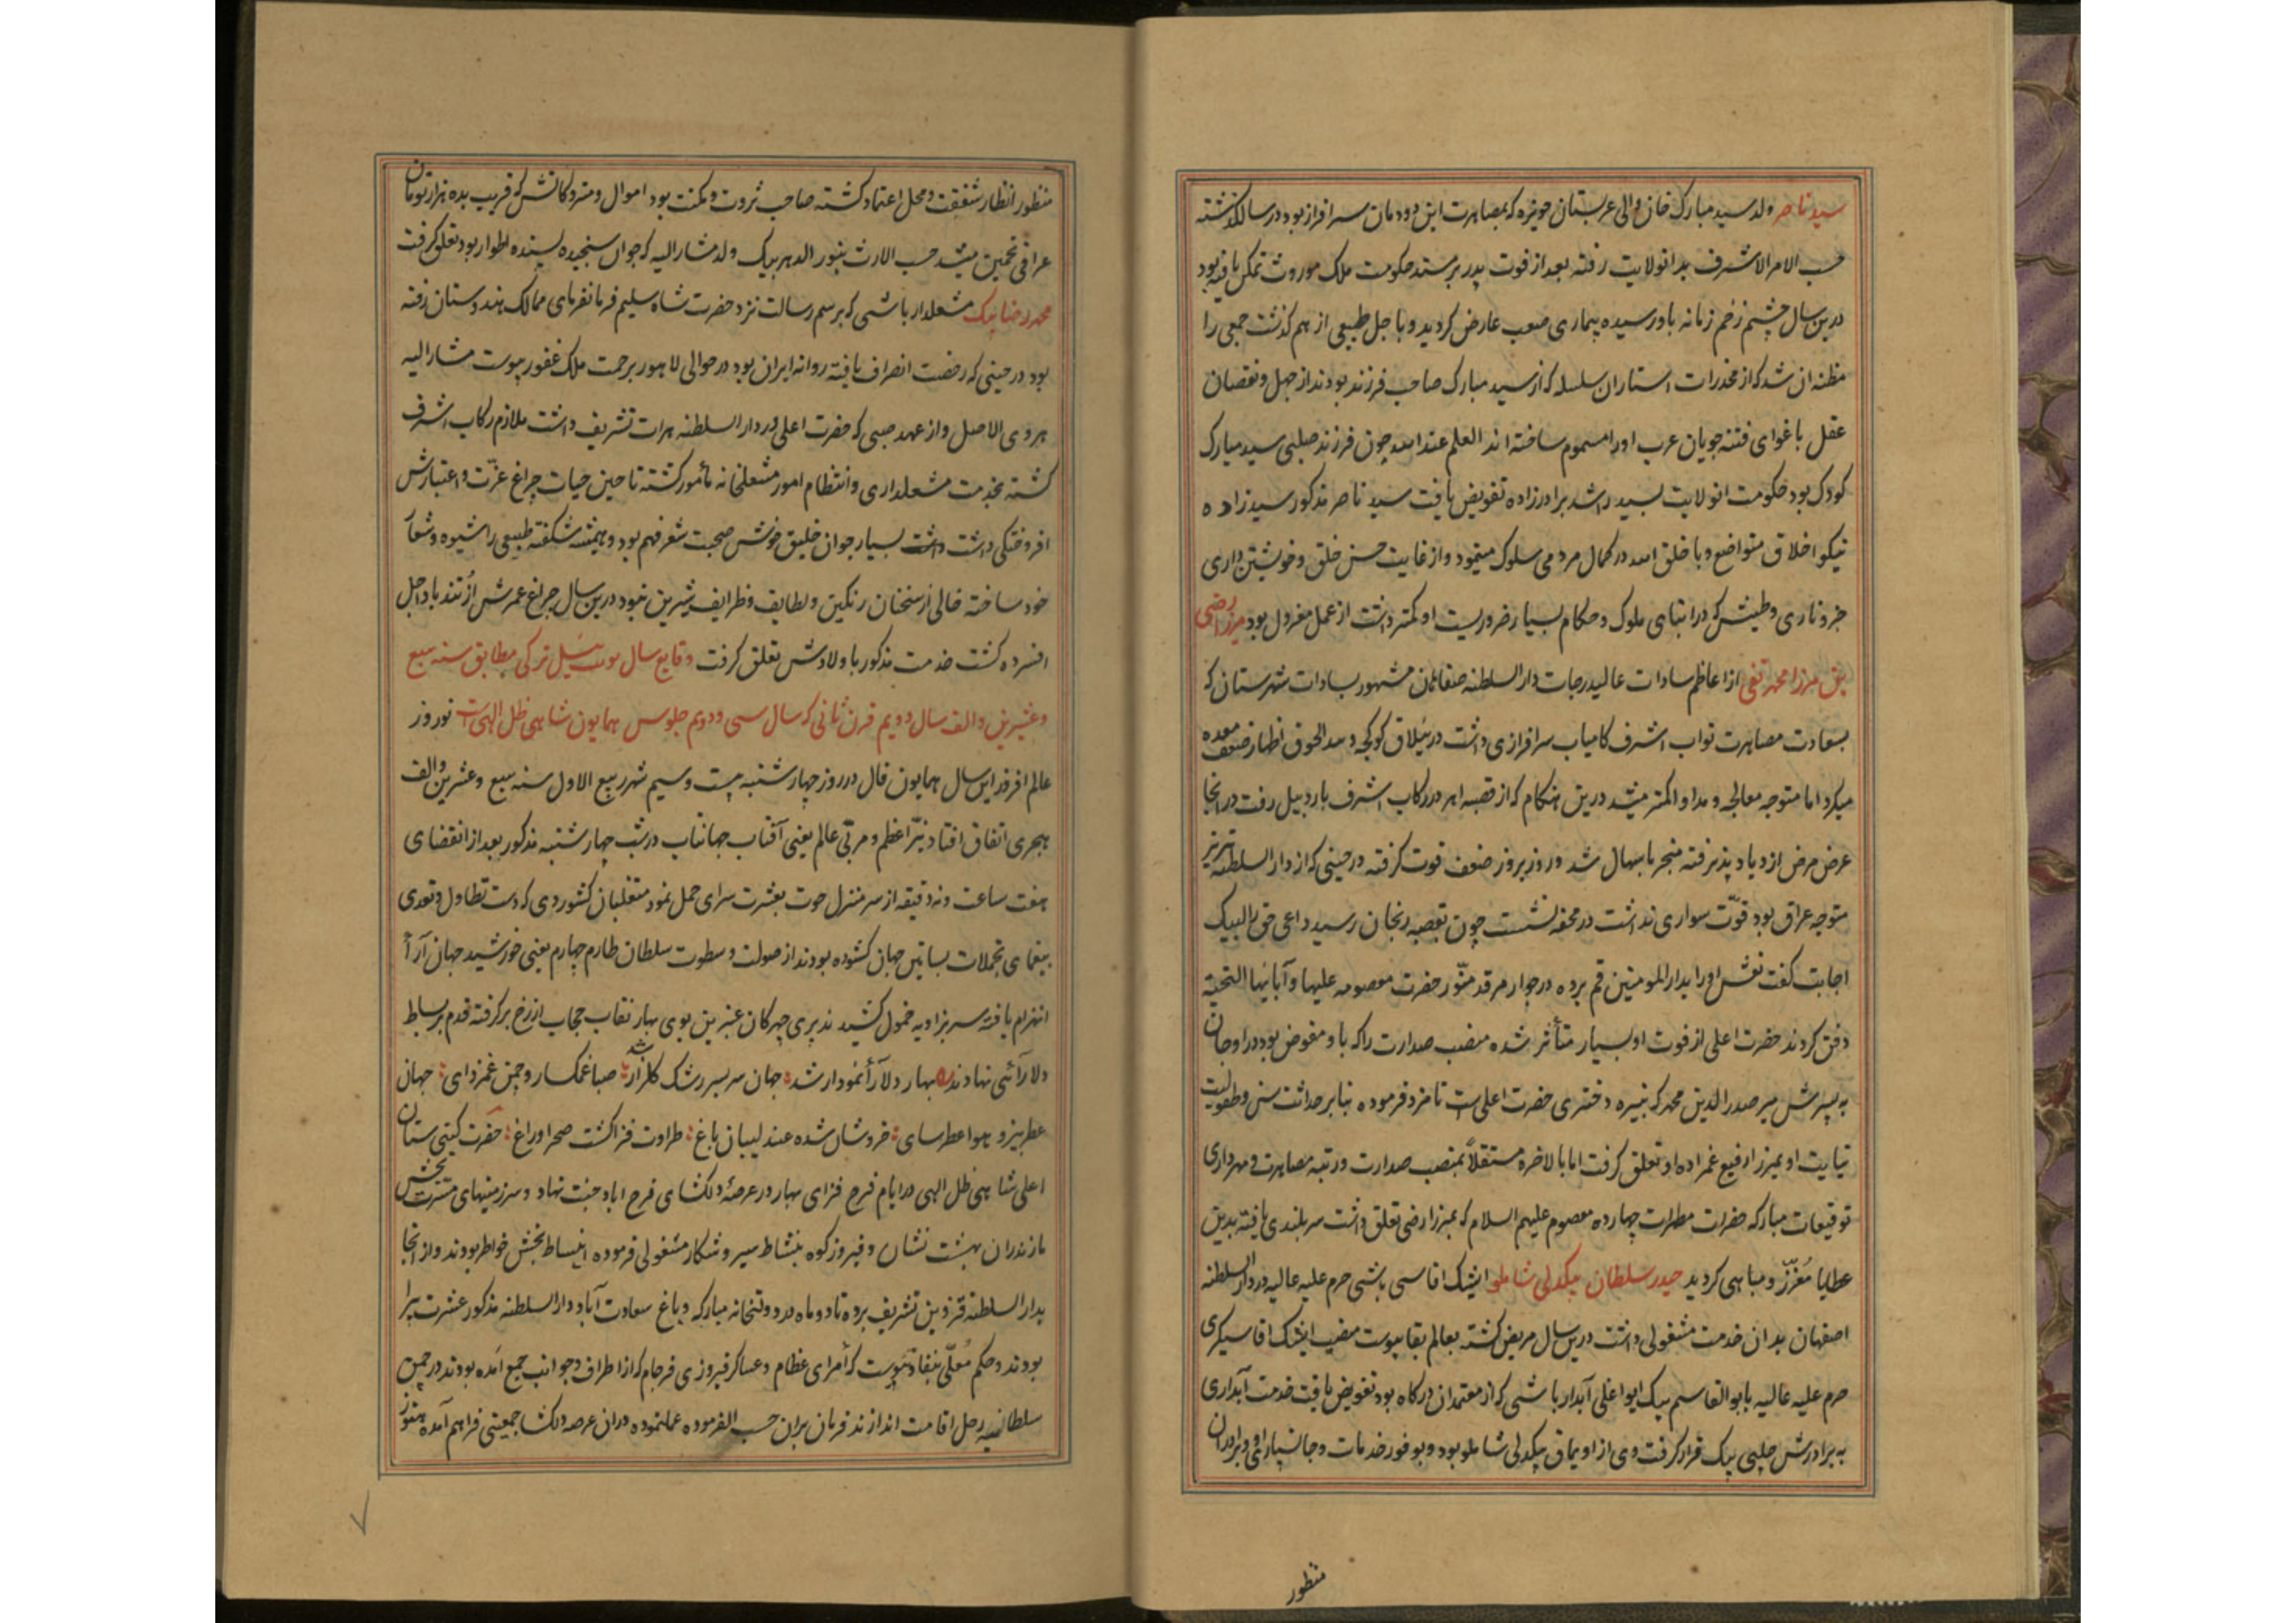 سید ناصر ولد سید مبارک خان والی عربستان حویزه که بمصاهرت این دودمان سرافراز بود در سال گذشته
حسب الامر الاشرف بدانولایت رفته بعد از فوت پدر بر مسند حکومت ملک موروث تمکن یافته بود
درین سال چشم زخم زمانه باو رسیده بیماری صعب عارض کردید و باجل طبیعی از هم کذشت جمعی را
مظنه ان شد که از مخدرات استار ان سلسله که از سید مبارک صاحب فرزند بودند از جهل و نقصان
عقل باغوای فتنه جویان عرب اورا مسموم ساخته اند العلم عند الله چون فرزند صلبی سید مبارک
کودک بود حکومت انولایت بسید راشد برادرزاده تفویض یافت سید ناصر مذکور سیدزاده
نیکو اخلاق متواضع و با خلق الله در کمال مردمی سلوک مینمود و از غایت حسن خلق و خویشتن داری
جز و ناری و طیش که در ابنای ملوک و حکام بسیار ضروریست او کمتر داشت از عمل معزول بود میرزا رضی
بن میرزا محمد تقی از اعاظم سادات عالیدرجات دار السلطنه صفاهان مشهور بسادات شهرستان که
بسعادت مصاهرت نواب اشرف کامیاب سرافرازی داشت در ییلاق کوکچه و الحوق اظهار ضعف معده
میکرد اما متوجه معالجه و مداوا کمتر میشد درین هنکام که از قصبه اهر در رکاب اشرف باردبیل رفت در انجا
عرض مرض ازدیاد پذیرفته منجر باسهال شد و روز بروز ضعف قوت کرفته در حینی که از دار السلطنه تبریز
متوجه عراق بود قوّت سواری نداشت در محفه نشست چون بقصبه زنجان رسید داعی حق را لبیک
اجابت گفت نعش اورا بدار المومنین قم برده در جوار مرقد منوّر حضرت معصومه علیها و آبائها التحیة
دفن کردند حضرت اعلی از فوت او بسیار متأثر شده منصب صدارت را که باو مفوض بود در اوجان
به پسرش میر صدر الدین محمد که نبیره دختری حضرت اعلی است نامزد فرموده بنابر حداثت سن و طفولیت
نیابت او بمیرزا رفیع عمزاده او تعلق کرفت اما بالاخره مستقلاً بمنصب صدارت و رتبه مصاهرت و مهرداری
توقیعات مبارکه حضرات مطهرات چهارده معصوم علیهم السلام که بمیرزا رضی تعلق داشت سربلندی یافته بدین
عطایا مُعزّز و مباهی کردید حیدر سلطان بیکدلی شاملو ایشک اقاسی باشی حرم علیه عالیه در دار السلطنه
اصفهان بدان خدمت مشغولی داشت درین سال مریض کشته بعالم بقا پیوست منصب ایشک اقاسیکری
حرم علیه عالیه بابو القاسم بیک ایواغلی آبدار باشی که از معتمدان درکاه بود تفویض یافت خدمت آبداری
به برادرش چلبی بیک قرار کرفت وی از اویماق بیکدلی شاملو بود و بوفور خدمات و جانسپاری او و برادران
منظور
منظور انظار شفقت و محل اعتماد کشته صاحب ثروت و مکنت بود اموال و متروکاتش که قریب بده هزار تومان
عراقی تخمین میشد حسب الارث بنور الدهر بیک ولد مشار الیه که جوان سنجیده پسندیده اطوار بود تعلق کرفت
محمد رضا بیک مشعلدار باشی که برسم رسالت نزد حضرت شاه سلیم فرمانفرمای ممالک هندوستان رفته
بود در حینی که رخصت انصراف یافته روانه ایران بود در حوالی لاهور برحمت ملک غفور پیوست مشار الیه
هروی الاصل و از عهد صبی که حضرت اعلی در دار السلطنه هرات تشریف داشت ملازم رکاب اشرف
کشته بخدمت مشعلداری و انتظام امور مشعلخانه مأمور کشته تا حین حیات چراغ عزّت و اعتبارش
افروختکی داشت داشت بسیار جوان خلیق خوش صحبت شعر فهم بود و همیشه شکفته طبیعی را شیوه و شعار
خود ساخته خالی از سخنان رنکین و لطایف و ظرایف شیرین نبود درین سال چراغ عمرش از تند باد اجل
افسرده کشت خدمت مذکور باولادش تعلق کرفت وقایع سال ئیل ترکی مطابق سنه سبع
و عشرین و الف سال دویم قرن ثانی که سال سی و دویم جلوس همایون شاهی ظل الهی است نوروز
عالم افروز این سال همایون فال در روز چهار شنبه بیست و سیم شهر ربیع الاول سنه سبع و عشرین و الف
هجری اتفاق افتاد نیّر اعظم و مربّی عالم یعنی آفتاب جهانتاب در شب چهارشنبه مذکور بعد از انقضای
هفت ساعت و نه دقیقه از سر منزل حوت بعشرت سرای حمل نمود متغلبان کشور دی که دست تطاول و تعدی
بیغمای تجملات بساتین جهان کشوده بودند از صولت و سطوت سلطان طارم چهارم یعنی خورشید جهان آرا
انهزام یافته سر بزاویه خمول کشیدند پری چهرکان عنبرین بوی بهار نقاب حجاب از رخ برکرفته قدم بر بساط
دلارائی نهادند بهار دلارا نمودار شد جهان سر بسر رشک کلزار شد صبا غمکسار و چمن غمزدای جهان
عطربیز و هوا عطرسای خروشان شده عندلیبان باغ طراوت فزا کشت صحرا و راغ حضرت کیتی ستان
اعلی شاهی ظل الهی در ایام فرح فزای بهار در عرصهٔ دلکشای فرح اباد جنت نهاد و سرزمینهای مسرّت بخش
مازندران بهشت نشان و فیروزکوه بنشاط سیر و شکار مشغولی فرموده انبساط بخش خواطر بودند و از انجا
بدار السلطنه قزوین تشریف برده تا دو ماه در دولتخانه مبارکه و باغ سعادت آباد دار السلطنه مذکور عشرت پیرا
بودند و حکم مُعلّی بنفاذ پیوست که أمرای عظام و عساکر فیروزی فرجام که از اطراف و جوانب جمع آمده بودند در چمن
سلطانیه رحل اقامت اندازند فرمان بران حسب الفرموده عمل نموده در ان عرصه دلکشا جمعیتی فراهم آمده هنوز